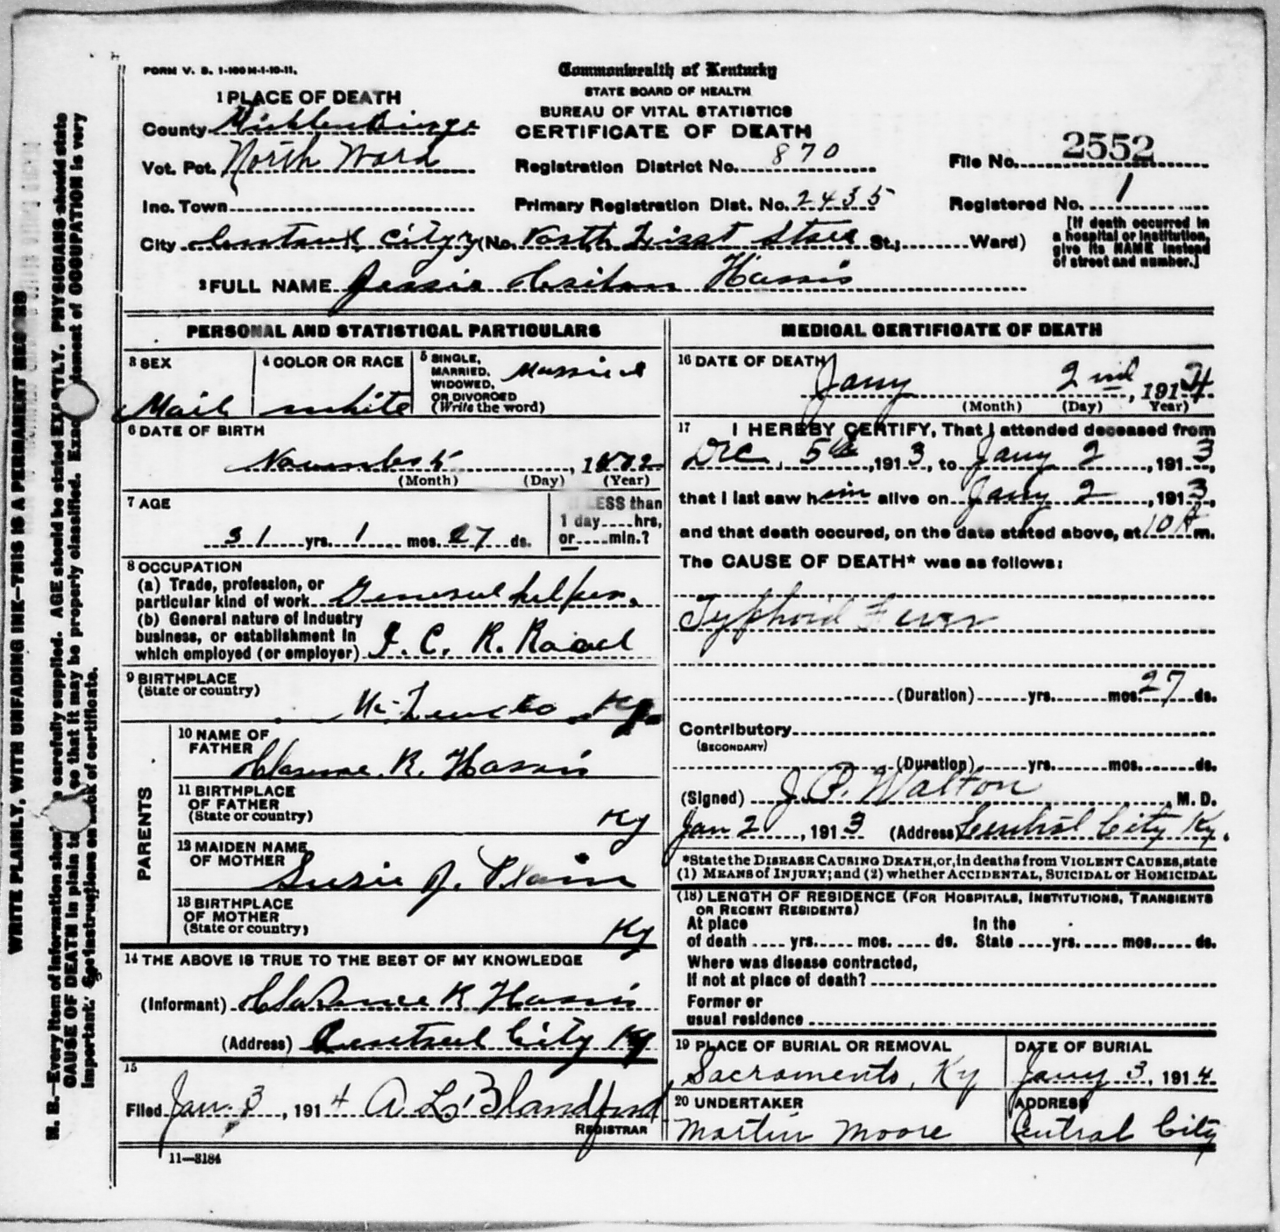 FORM V. S. 1-100M-1-10-11.
Commonwealth of Kentucky
STATE BOARD OF HEALTH
BUREAU OF VITAL STATISTICS
CERTIFICATE OF DEATH
1 PLACE OF DEATH
County
Vot. Pct. North Ward
Inc. Town
City
Registration District No. 870
Primary Registration Dist. No. 2435
(No. North First St.; Ward)
File No. 2552
Registered No. 1
[If death occurred in
a hospital or institution,
give its NAME instead
of street and number.]
2 FULL NAME Harris
PERSONAL AND STATISTICAL PARTICULARS
3 SEX
Mail
4 COLOR OR RACE
white
5 SINGLE,
MARRIED,
WIDOWED,
OR DIVORCED
(Write the word)
Married
6 DATE OF BIRTH
(Month) (Day) (Year)
7 AGE
31 yrs. 1 mos. 27 ds.
If LESS than
1 day....hrs,
or....min.?
8 OCCUPATION
(a) Trade, profession, or
particular kind of work General helper.
(b) General nature of industry
business, or establishment in
which employed (or employer) I. C. R. Road
9 BIRTHPLACE
(State or country)
Ky
PARENTS
10 NAME OF
FATHER
Clarence R. Harris
11 BIRTHPLACE
OF FATHER
(State or country)
Ky
12 MAIDEN NAME
OF MOTHER
Susie J.
13 BIRTHPLACE
OF MOTHER
(State or country)
Ky
14 THE ABOVE IS TRUE TO THE BEST OF MY KNOWLEDGE
(Informant) Clarence R Harris
(Address) Central City Ky
15
Filed Jan. 3, 1914 A L Blandford
REGISTRAR
11—3184
MEDICAL CERTIFICATE OF DEATH
16 DATE OF DEATH
Jany 2nd, 1914
(Month) (Day) Year)
17 I HEREBY CERTIFY, That I attended deceased from
Dec. 5th, 1913, to Jany 2, 1913,
that I last saw him alive on Jany 2, 1913,
and that death occured, on the date stated above, at 10 A m.
The CAUSE OF DEATH* was as follows:
Typhoid Fever
(Duration) yrs. mos. 27 ds.
Contributory
(SECONDARY)
(Duration) yrs. mos. ds.
(Signed) J. P. Walton, M. D.
Jan 2, 1913 (Address) Central City Ky.
*State the DISEASE CAUSING DEATH, or, in deaths from VIOLENT CAUSES, state
(1) MEANS OF INJURY; and (2) whether ACCIDENTAL, SUICIDAL OR HOMICIDAL
(18) LENGTH OF RESIDENCE (FOR HOSPITALS, INSTITUTIONS, TRANSIENTS
OR RECENT RESIDENTS)
At place In the
of death .... yrs. .... mos. .... ds. State .... yrs. .... mos. .... ds.
Where was disease contracted,
If not at place of death?
Former or
usual residence
19 PLACE OF BURIAL OR REMOVAL
Sacramento, Ky
DATE OF BURIAL
Jany 3, 1914
20 UNDERTAKER
Martin Moore
ADDRESS
Central City
WRITE PLAINLY, WITH UNFADING INK—THIS IS A PERMANENT RECORD
N. B.—Every item of information should be carefully supplied. AGE should be stated EXACTLY. PHYSICIANS should state
CAUSE OF DEATH in plain so that it may be properly classified. Exact statement of OCCUPATION is very
important. See instructions on back of certificate.